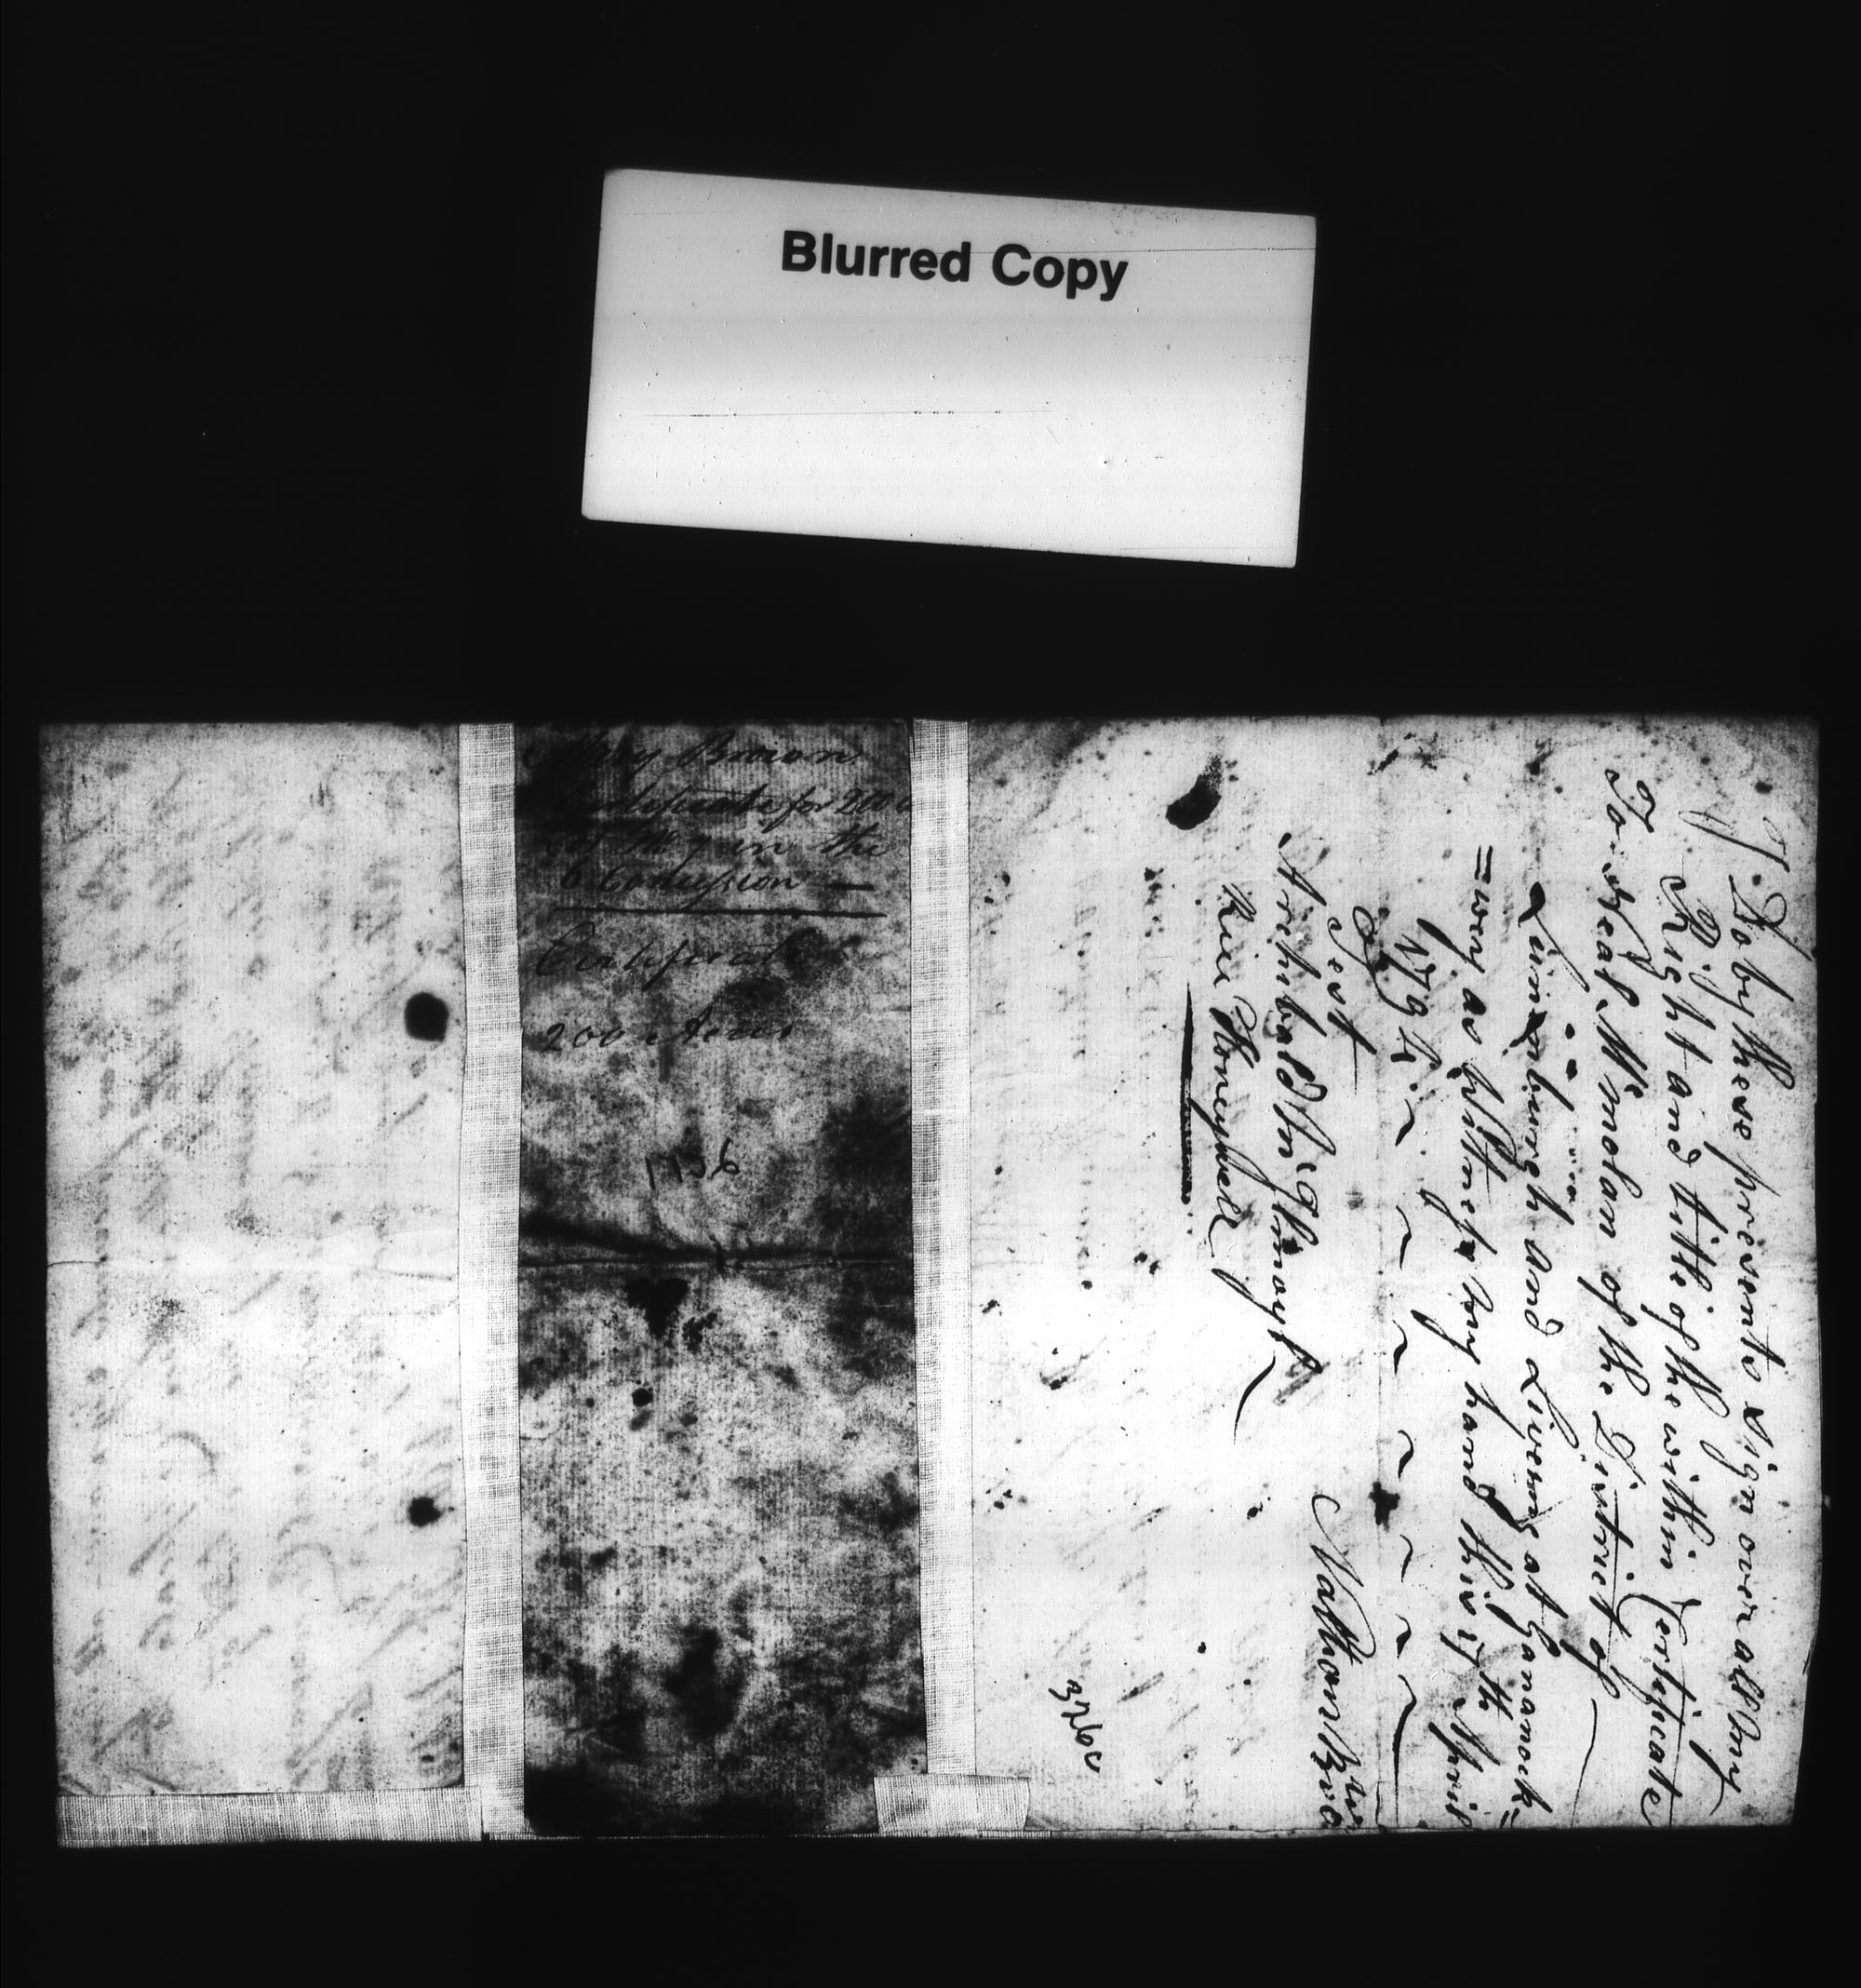 Blurred Copy
Mary Brown
Certificate for 200 a
in the
6 Concession
Certificate
200 Acres
1796
I Do by these presents Sign over all my
Right and title of the within Certificate
To Neal McMolan of the District of
Lunenburgh and Living at Gananock=
=way as Witness my hand this 17th April
Test
Archibald
Nathan Brow